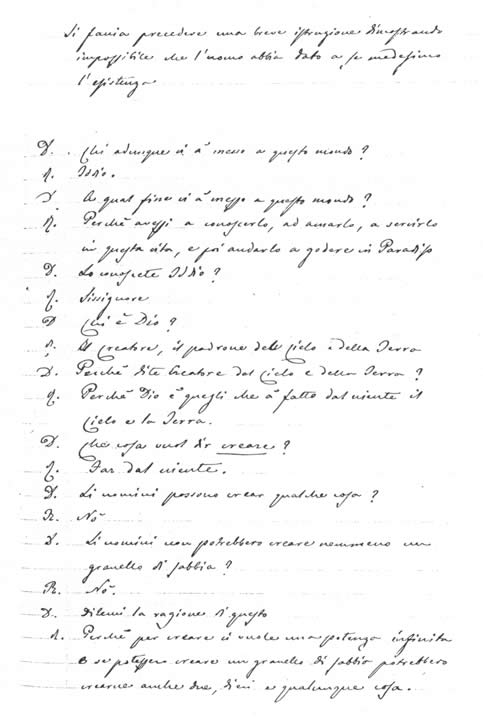 Si fania precedere una breve istruzione dimostrando
impossibile che l'uomo abbia dato a se medesimo
l'esistenza
D. Chi adunque vi à messo a questo mondo?
R. Iddio.
D. A qual fine vi à messo a questo mondo?
R. Perchè avessi a conoscerlo, ad amarlo, a servirlo
in questa vita, e poi andarlo a godere in Paradiso
D. Lo conoscete Iddio?
R. Sissignore
D. Chi è Dio?
R. Il Creatore, il padrone del Cielo e della Terra
D. Perchè dite Creatore del Cielo e della Terra?
R. Perchè Dio è quegli che à fatto dal niente il
Cielo e la Terra.
D. Che cosa vuol dir creare?
R. Far dal niente.
D. Li uomini possono crear qualche cosa?
R. Nò
D. Li uomini non potrebbero creare nemmeno un
granello di sabbia?
R. Nò.
D. Ditemi la ragione di questo
R. Perchè per creare ci vuole una potenza infinita
e se potessero creare un granello di sabbia potrebbero
crearne anche due, dieci e qualunque cosa.